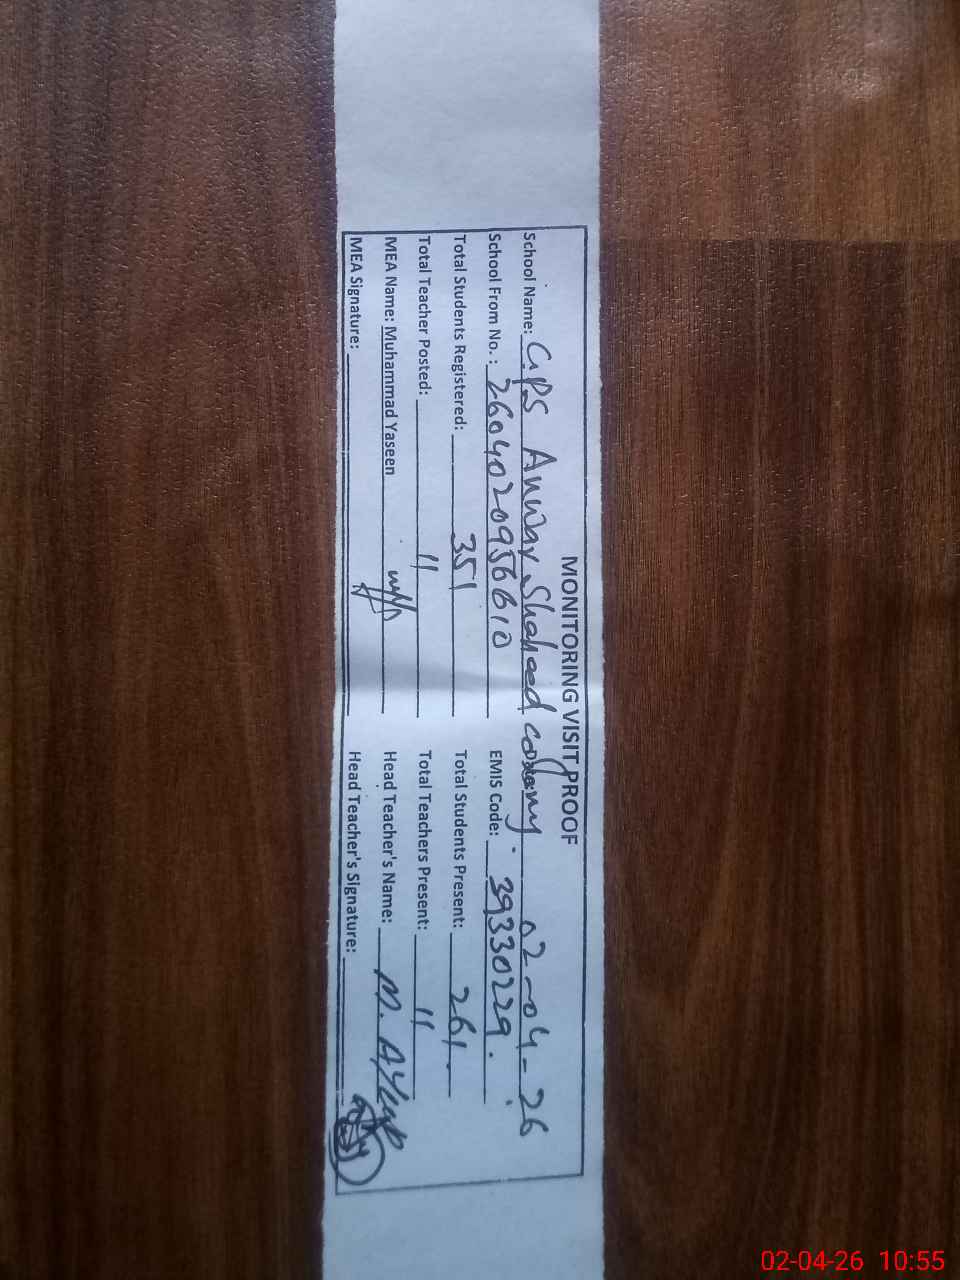 MONITORING VISIT PROOF
School Name: GPS Anwar Shaheed colony 02-04-26
School From No.: 2604020956610 EMIS Code: 39330229.
Total Students Registered: 351 Total Students Present: 261
Total Teacher Posted: 11 Total Teachers Present: 11
MEA Name: Muhammad Yaseen Head Teacher's Name: M. AYKUP
MEA Signature: Head Teacher's Signature:
02-04-26 10:55